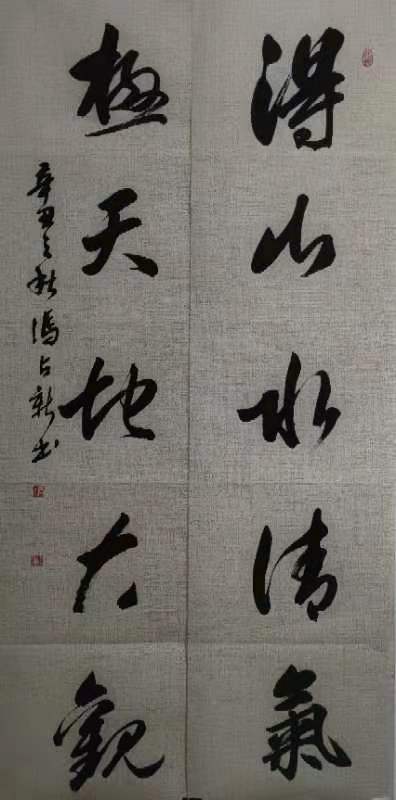 得山水清氣
極天地大觀
辛丑之秋馮占新书